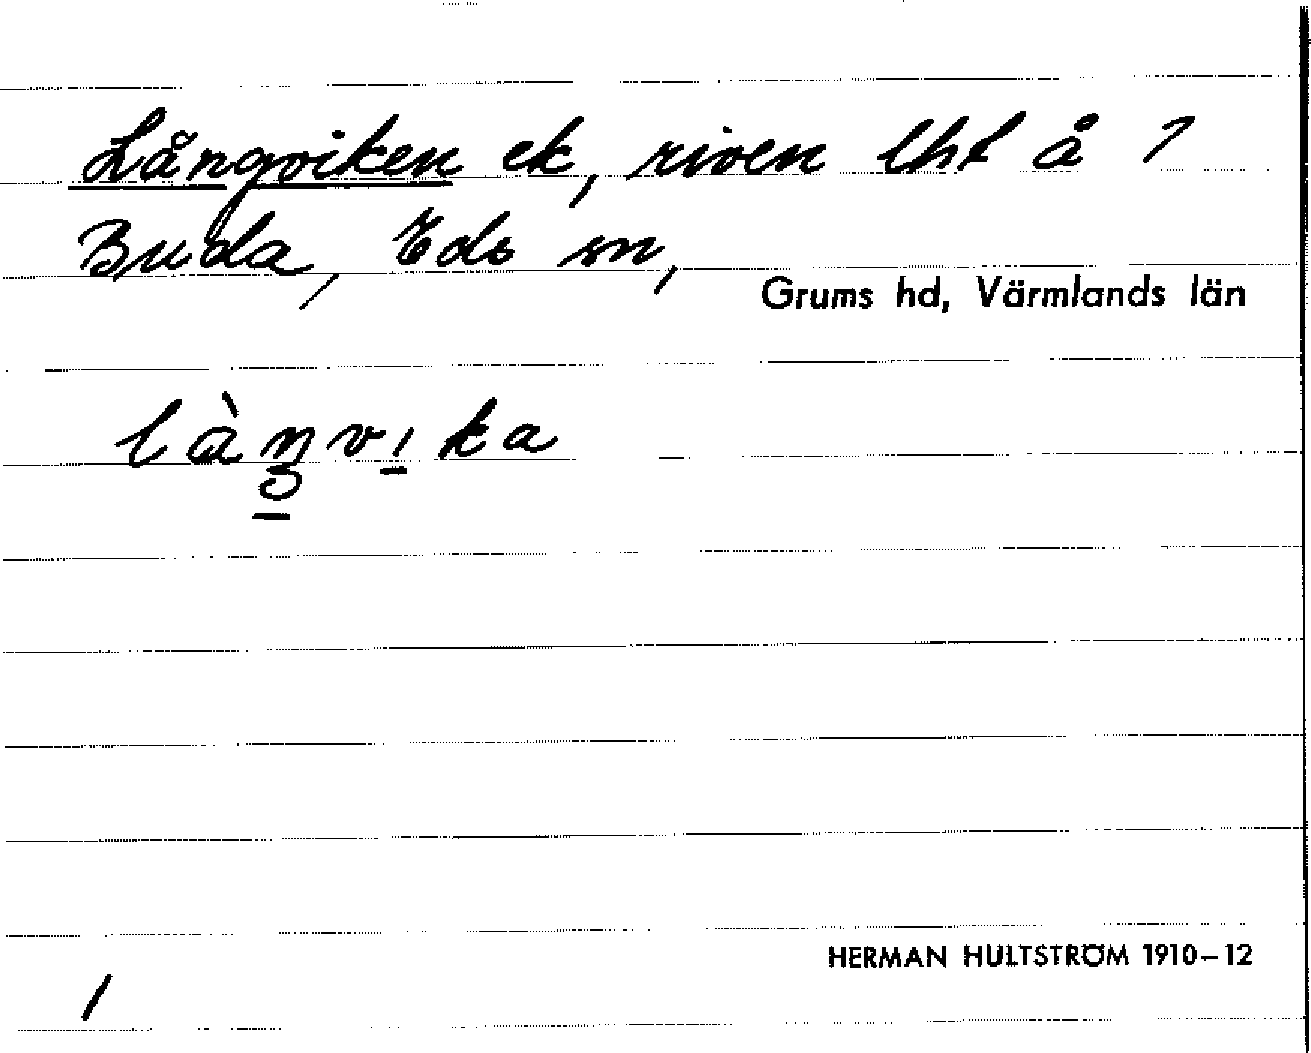 Långviken ek, riven lht å 1
Buda, Eds sn,
Grums hd, Värmlands län
låŋvıka
HERMAN HULTSTRÖM 1910–12
1